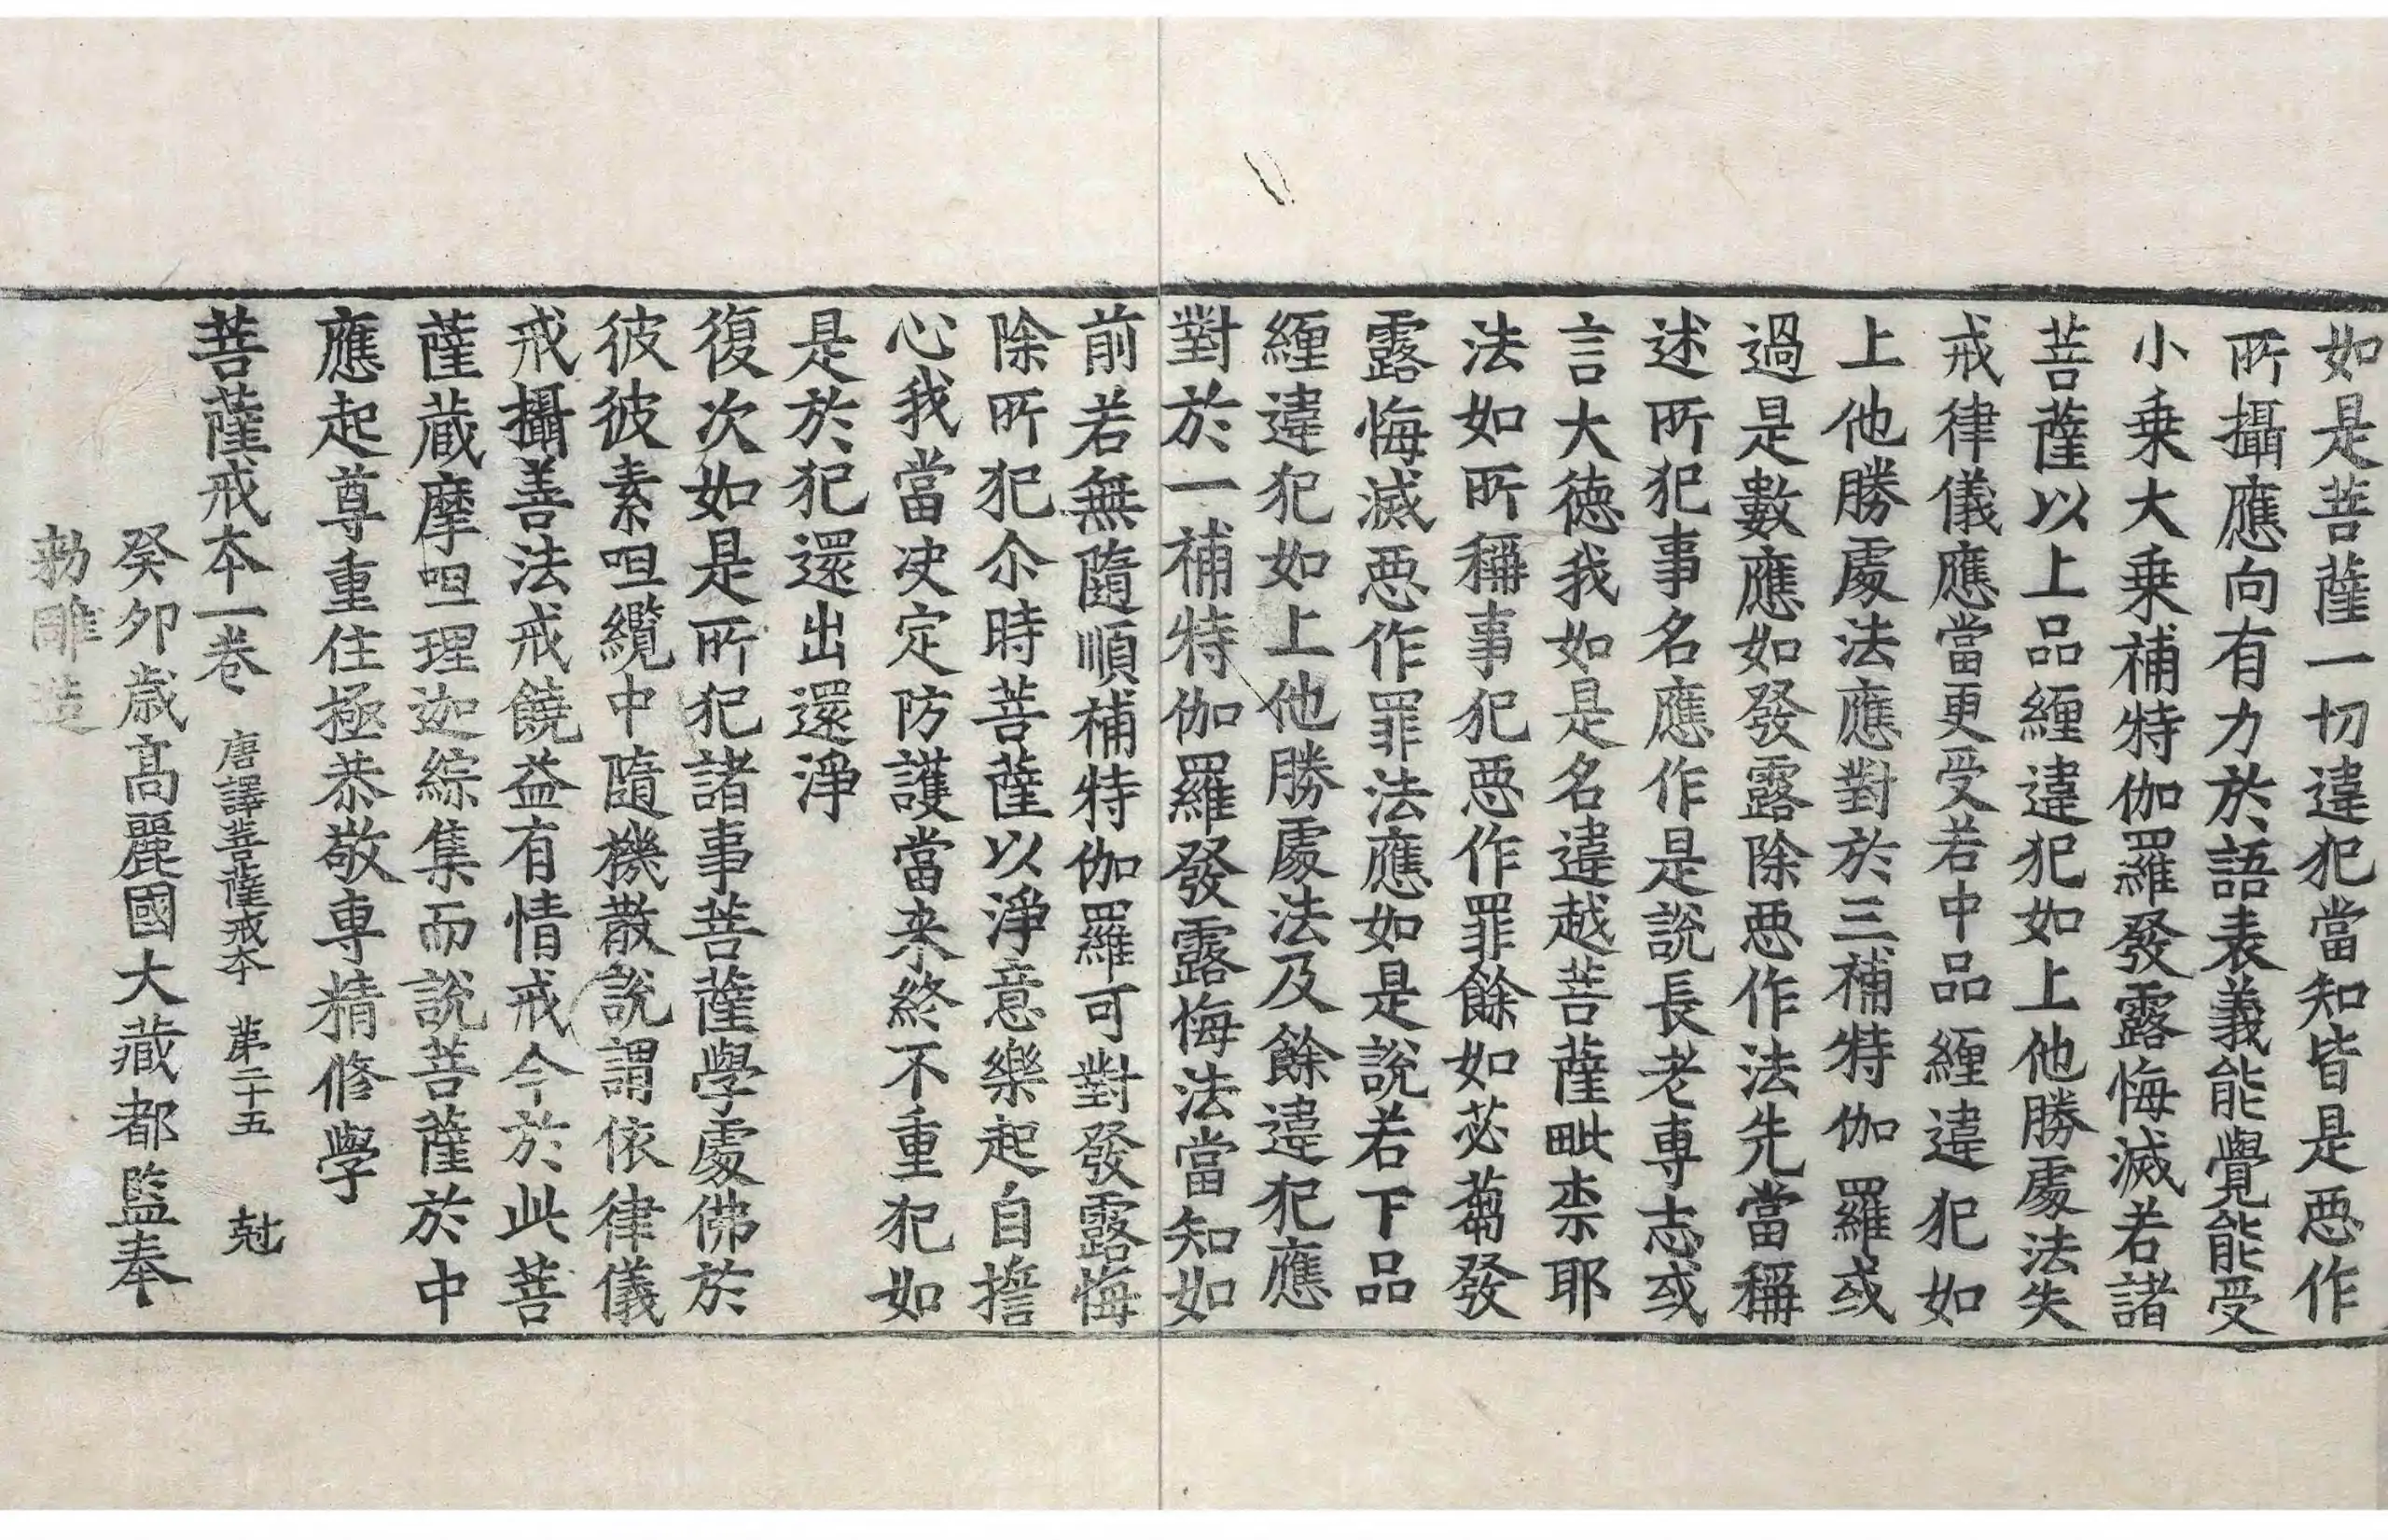 如是菩薩一切違犯當知皆是惡作
所攝應向有力於語表義能覺能受
小乗大乗補特伽羅發露悔滅若諸
菩薩以上品纏違犯如上他勝處法失
戒律儀應當更受若中品纏違犯如
上他勝處法應對於三補特伽羅或
過是數應如發露除惡作法先當稱
述所犯事名應作是說長老專志或
言大德我如是名違越菩薩毗柰耶
法如所稱事犯惡作罪餘如苾蒭發
露悔滅惡作罪法應如是說若下品
纏違犯如上他勝處法及餘違犯應
對於一補特伽羅發露悔法當知如
前若無隨順補特伽羅可對發露悔
除所犯尒時菩薩以淨意樂起自擔
心我當決定防護當来終不重犯如
是於犯還出還淨
復次如是所犯諸事菩薩學處佛於
彼彼素呾纜中隨機散說謂依律儀
戒攝善法戒饒益有情戒今於此菩
薩蔵摩呾理迦綜集而說菩薩於中
應起尊重住極恭敬専精修學
菩薩戒本一卷 唐譯菩薩戒本 第二十五 尅
癸卯歲髙麗國大藏都監奉
勑雕造